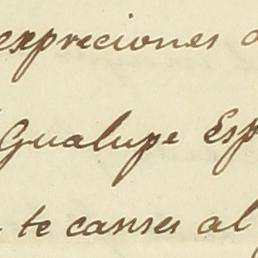 expreciones
Gualupe Esp
te canses al